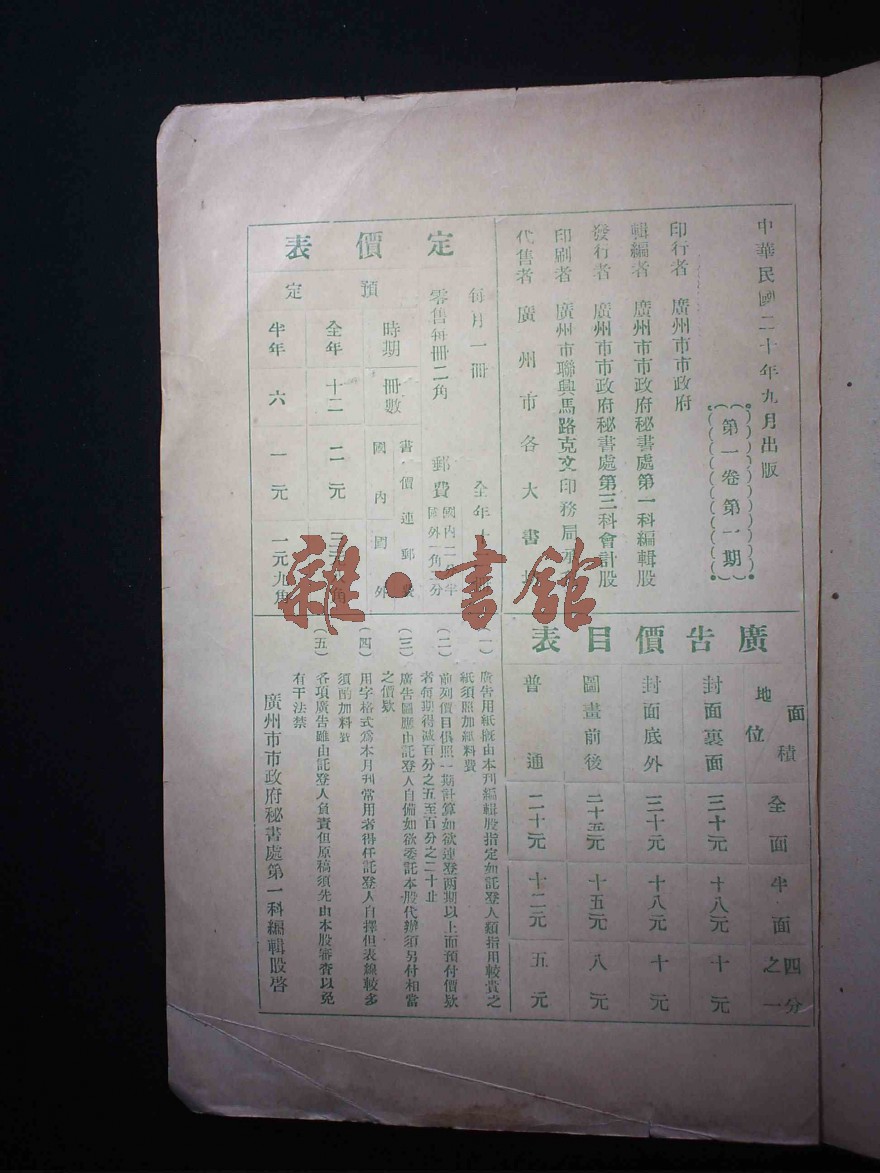 中華民國二十年九月出版
第一卷第一期
印行者 廣州市市政府
輯編者 廣州市市政府秘書處第一科編輯股
發行者 廣州市市政府秘書處第三科會計股
印刷者 廣州市聯興馬路克文印務局承
代售者 廣州市各大書
定價表
每月一冊 全年十
零售每冊二角 郵費 國內二 半 國外一角二分
預定
時期 冊數 書價連郵費 國內 國外
全年 十二 二元 三 角
半年 六 一元 一元九角
廣告價目表
面積 地位 全面 半面 四分之一
封面裏面 三十元 十八元 十元
封面底外 三十元 十八元 十元
圖畫前後 二十五元 十五元 八元
普通 二十元 十二元 五元
(一) 廣告用紙概由本刊編輯股指定如託登人類指用較貴之
紙須照加紙料費
(二) 前列價目俱照一期計算如欲連登兩期以上而預付價欵
者每期得減百分之五至百分之二十止
(三) 廣告圖應由託登人自備如欲委託本股代辦須另付相當
之價欵
(四) 用字格式爲本月刊常用者得任託登人自擇但表線較多
須酌加料費
(五) 各項廣告雖由託登人負責但原稿須先由本股審查以免
有干法禁
廣州市市政府秘書處第一科編輯股啓
雜·書館